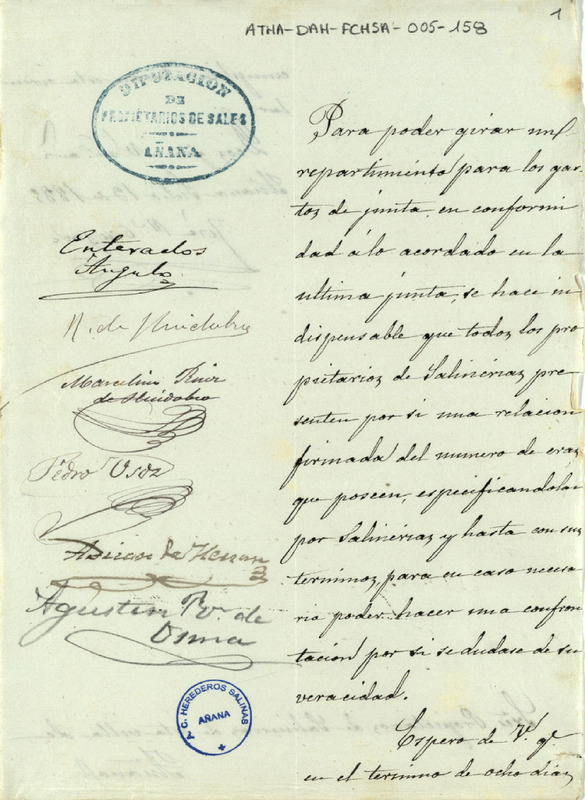 1
ATHA-DAH-FCHSA-005-158
DIPUTACION
DE
PROPIETARIOS DE SALES
AÑANA
Para poder girar un
repartimiento para los gas-
tos de junta en conformi
dad á lo acordado en la
ultima junta, se hace in
dispensable que todos los pro
pietarios de Salinerias pre
senten por si una relacion
firmada del numero de eras
que poseen, especificandolas
por Salinerias y hasta con sus
terminos, para en caso necesa
rio poder hacer una confron
tacion por si se dudase de su
veracidad.
Espero de V. qe
en el termino de ocho dias
Enterados
Angulo
R. de Huidobro
Marcelino Ruiz
de Huidobro
Pedro Usoz
de Herran
Agustin Rz. de
Osma
C. HEREDEROS SALINAS
AÑANA